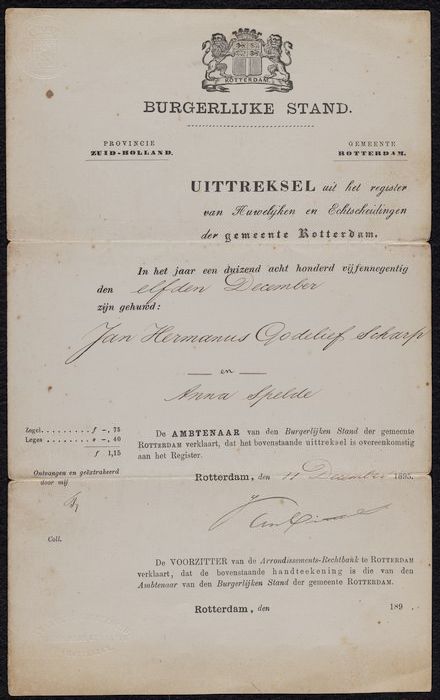 ROTTERDAM
BURGERLIJKE STAND.
PROVINCIE
ZUID-HOLLAND.
GEMEENTE
ROTTERDAM.
UITTREKSEL uit het register
van Huwelijken en Echtscheidingen
der gemeente Rotterdam.
In het jaar een duizend acht honderd vijfennegentig
den elfden December
zijn gehuwd:
Jan Hermanus Godelief Scharp
en
Anna Spelde
Zegel........ f -,75
Leges........ „ -,40
f 1,15
Ontvangen en geëxtraheerd
door mij
Coll.
De AMBTENAAR van den Burgerlijken Stand der gemeente
ROTTERDAM verklaart, dat het bovenstaande uittreksel is overeenkomstig
aan het Register.
Rotterdam, den 11 December 1895.
De VOORZITTER van de Arrondissements-Rechtbank te ROTTERDAM
verklaart, dat de bovenstaande handteekening is die van den
Ambtenaar van den Burgerlijken Stand der gemeente ROTTERDAM.
Rotterdam, den 189 .